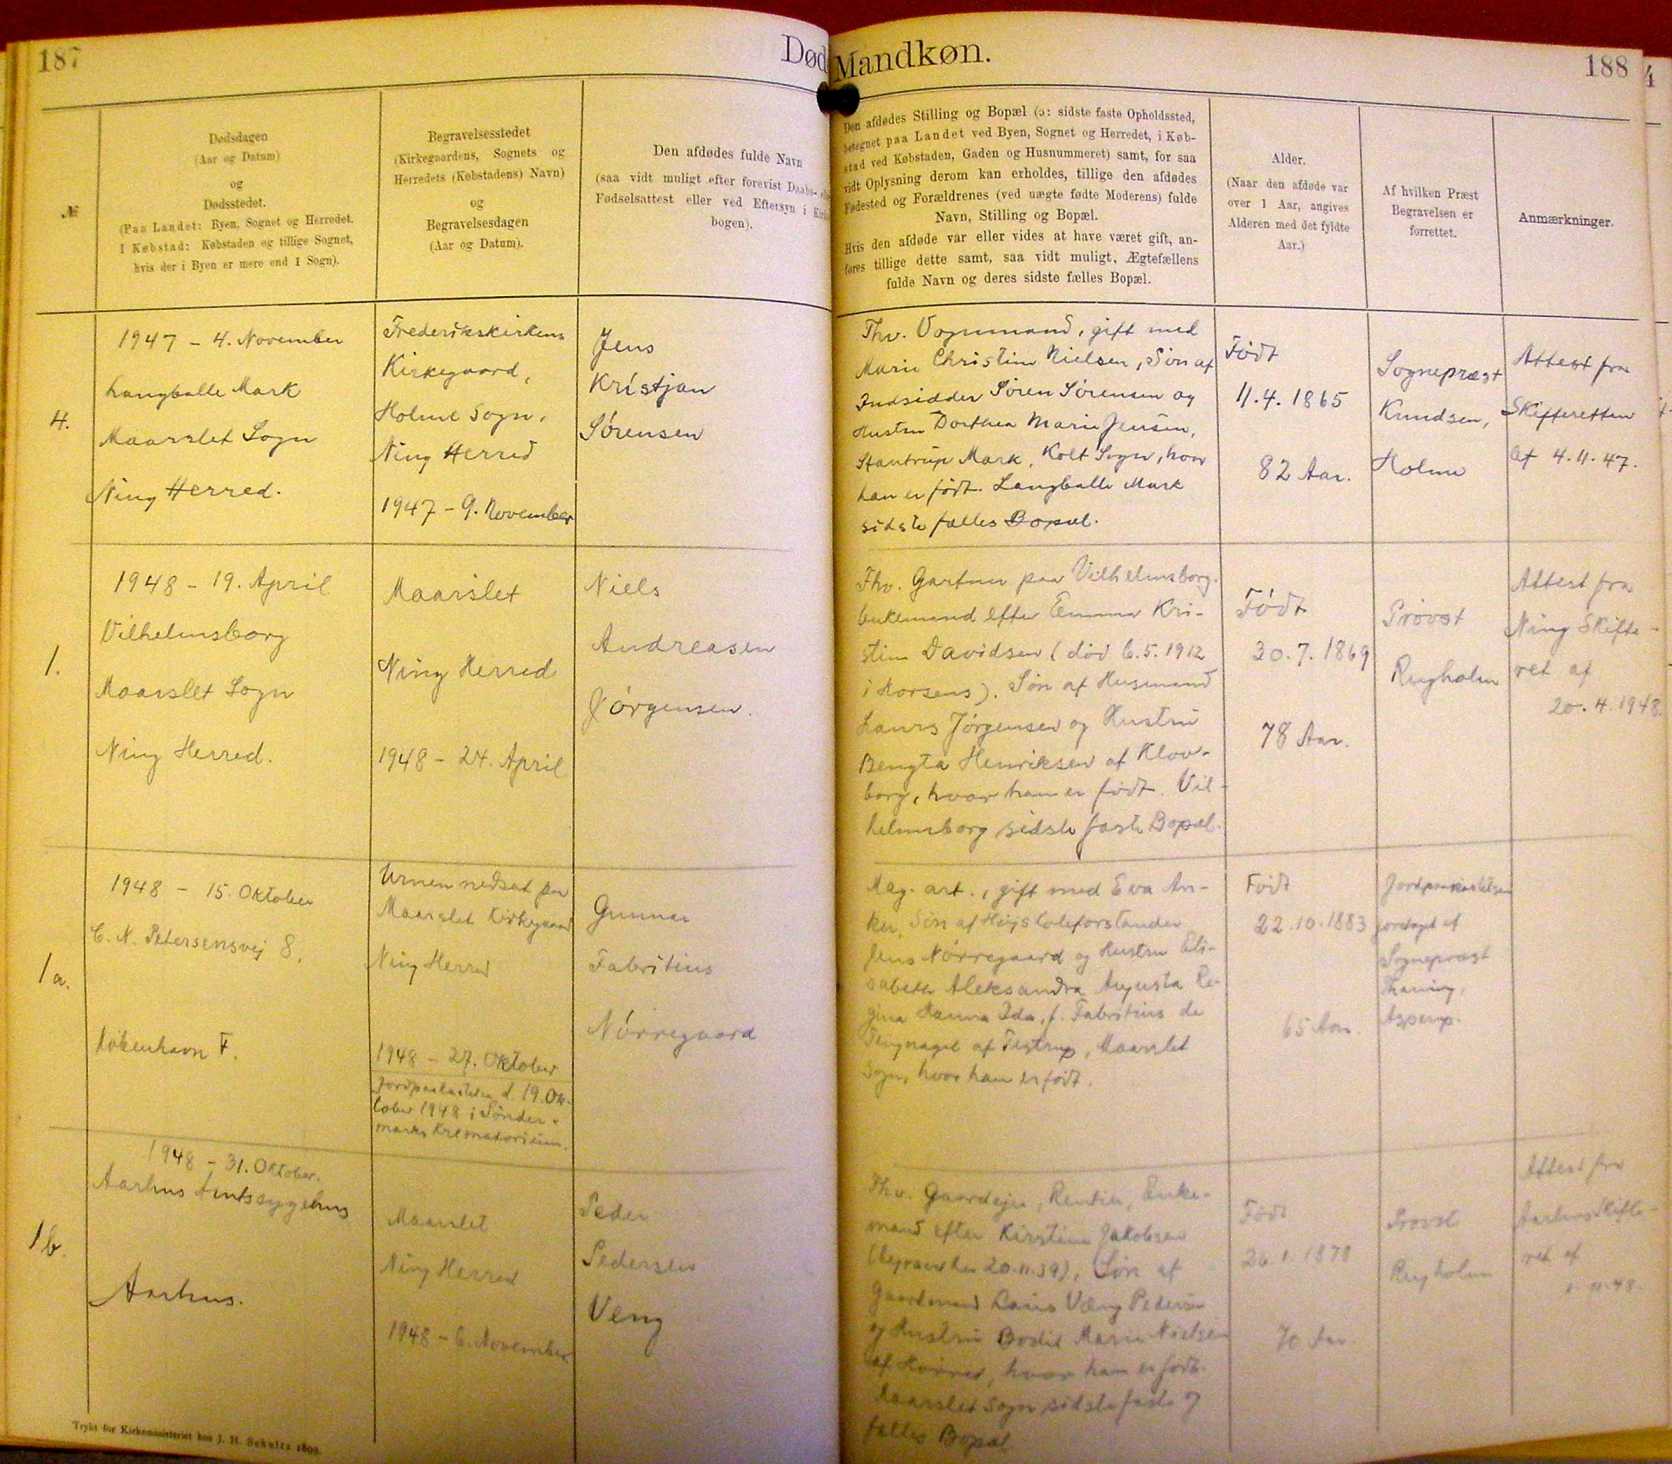 187
Død
Mandkøn.
188
4
№
Dødsdagen
(Aar og Datum)
og
Dødsstedet.
(Paa Landet: Byen, Sognet og Herredet.
I Købstad: Købstaden og tillige Sognet,
hvis der i Byen er mere end 1 Sogn).
Begravelsesstedet
(Kirkegaardens, Sognets og
Herredets (Købstadens) Navn)
og
Begravelsesdagen
(Aar og Datum).
Den afdødes fulde Navn
(saa vidt muligt efter forevist Daabs-
Fødselsattest eller ved Eftersyn i
bogen).
Den afdødes Stilling og Bopæl (ɔ: sidste faste Opholdssted,
betegnet paa Landet ved Byen, Sognet og Herredet, i Køb-
stad ved Købstaden, Gaden og Husnummeret) samt, for saa
vidt Oplysning derom kan erholdes, tillige den afdødes
Fødested og Forældrenes (ved uægte fødte Moderens) fulde
Navn, Stilling og Bopæl.
Hvis den afdøde var eller vides at have været gift, an-
føres tillige dette samt, saa vidt muligt, Ægtefællens
fulde Navn og deres sidste fælles Bopæl.
Alder.
(Naar den afdøde var
over 1 Aar, angives
Alderen med det fyldte
Aar.)
Af hvilken Præst
Begravelsen er
forrettet.
Anmærkninger.
4.
1947 - 4. November
Langballe Mark
Maarslet Sogn
Ning Herred.
Frederikskirkens
Kirkegaard,
Holme Sogn,
Ning Herred
1947 - 9. November
Jens
Kristjan
Sørensen
Fhv. Vognmand, gift med
Marie Christine Nielsen, Søn af
Indsidder Søren Sørensen og
Hustru Dorthea Marie Jensen,
Stautrup Mark, Kolt Sogn, hvor
han er født. Langballe Mark
sidste fælles Bopæl.
Født
11.4.1865
82 Aar.
Sognepræst
Knudsen,
Holme
Attest fra
Skifteretten
af 4.11.47.
1.
1948 - 19. April
Vilhelmsborg
Maarslet Sogn
Ning Herred.
Maarslet
Ning Herred
1948 - 24. April
Niels
Andreasen
Jørgensen.
Fhv. Gartner paa Vilhelmsborg.
Enkemand efter Emma Kri-
stine Davidsen (død 6.5.1912
i Horsens). Søn af Husmand
Laurs Jørgensen og Hustru
Bengta Henriksen af Klov-
borg, hvor han er født. Vil-
helmsborg sidste faste Bopæl.
Født
30.7.1869
78 Aar.
Provst
Rugholm
Attest fra
Ning Skifte-
ret af
20.4.1948.
1a.
1948 - 15. Oktober
C. N. Petersensvej 8.
København F.
Urnen nedsat paa
Maarslet Kirkegaard
Ning Herred
1948 - 27. Oktober
Jordpaakastelse d. 19. Ok-
tober 1948 i Sønder-
marks Krematorium.
Gunnar
Fabritius
Nørregaard
Mag. art., gift med Eva An-
ker, Søn af Højskoleforstander
Jens Nørregaard og Hustru Eli-
sabeth Aleksandra Augusta Re-
gina Hanna Ida, f. Fabritius de
Tengnagel af Testrup, Maarslet
Sogn, hvor han er født.
Født
22.10.1883
65 Aar.
Jordpaakastelsen
foretaget af
Sognepræst
Thaning,
Asperup.
1b.
1948 - 31. Oktober.
Aarhus Amtssygehus
Aarhus.
Maarslet
Ning Herred
1948 - 6. November
Peder
Pedersen
Veng
Fhv. Gaardejer, Rentier, Enke-
mand efter Kirstine Jakobsen
20.11.39), Søn af
Gaardmand Laurs Veng Pedersen
og Hustru Bodil Marie Nielsen
af Hørret, hvor han er født.
Maarslet Sogn sidste faste og
fælles Bopæl
Født
26.1.1878
70 Aar
Provst
Rugholm
Attest fra
Aarhus Skifte-
ret af
11.48.
Trykt for Kirkeministeriet hos J. H. Schultz